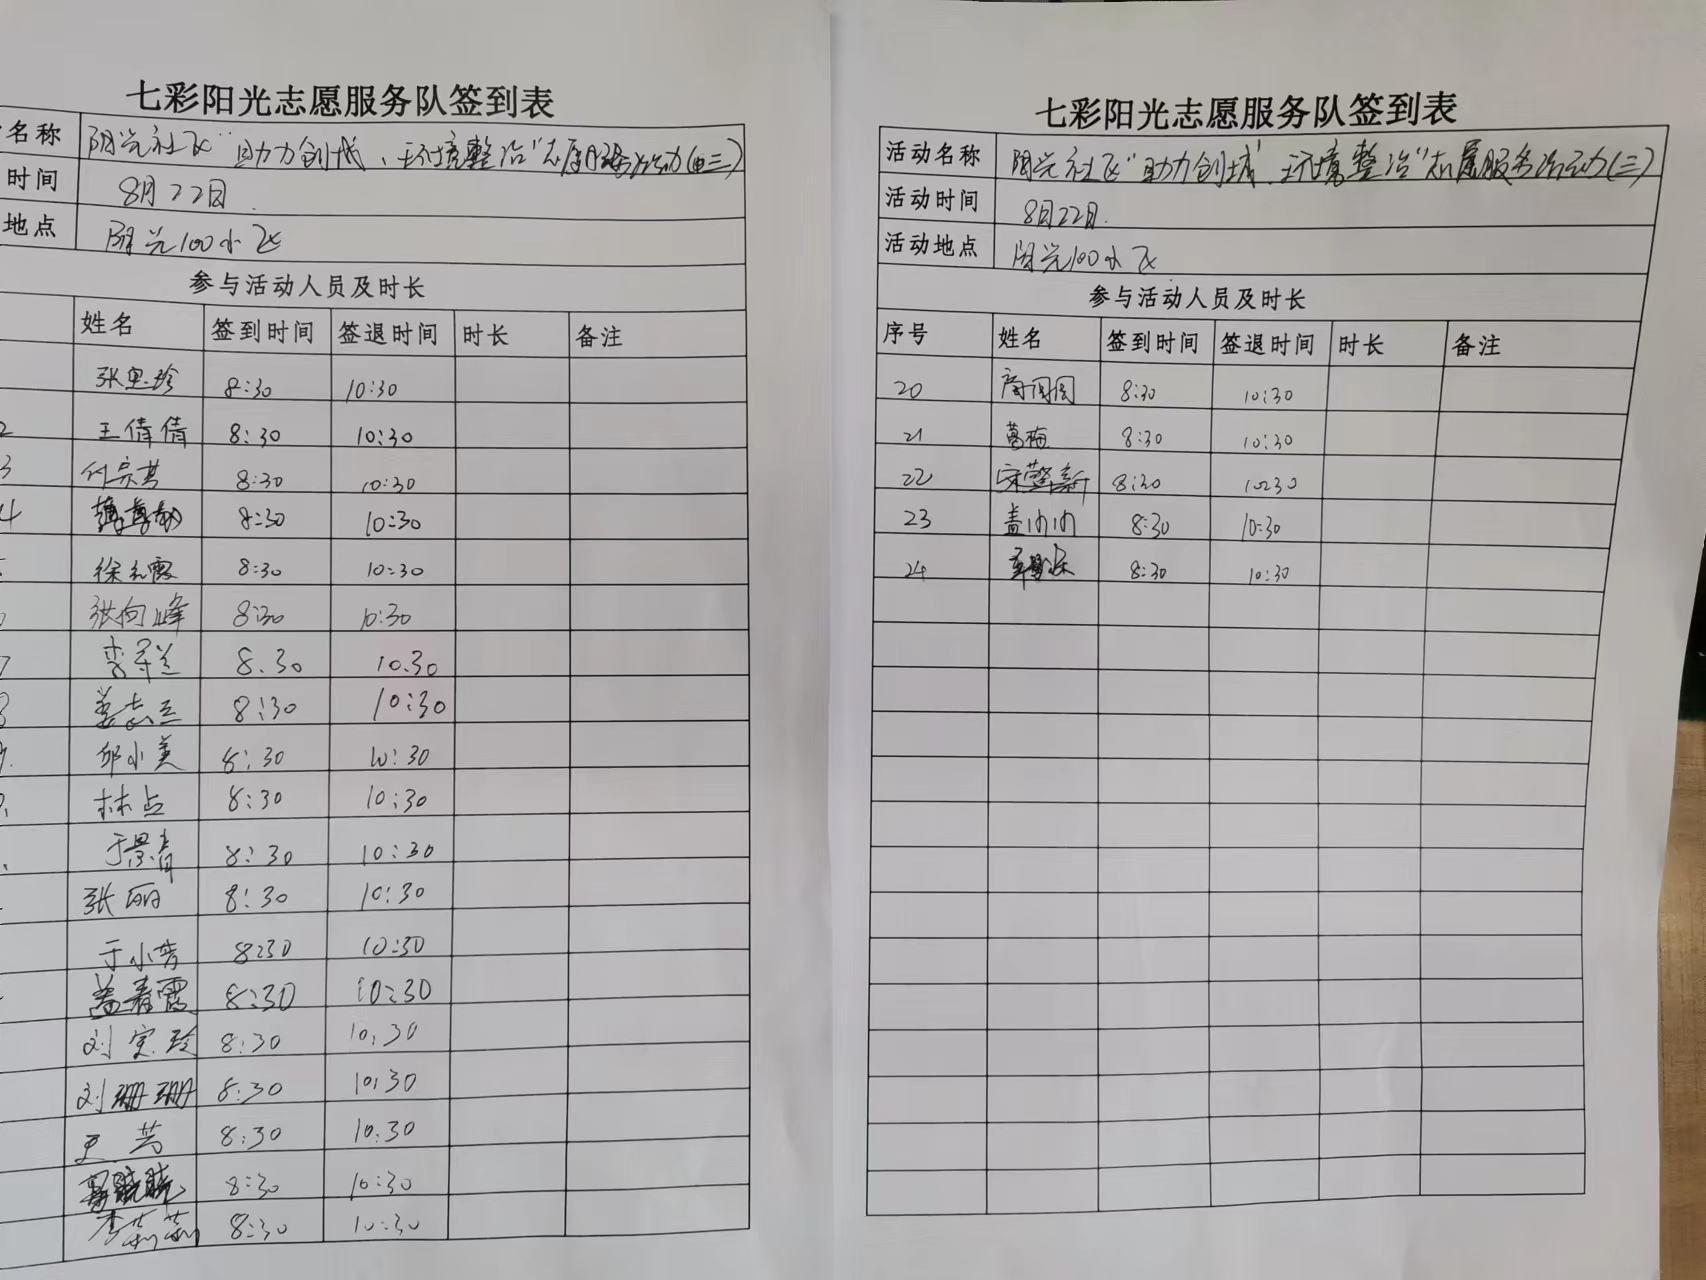 七彩阳光志愿服务队签到表
名称 阳光社区"助力创城、环境整治"志愿服务活动(三)
时间 8月22日
地点 阳光100小区
参与活动人员及时长
姓名 签到时间 签退时间 时长 备注
张思珍 8:30 10:30
2 王倩倩 8:30 10:30
3 付宗其 8:30 10:30
4 8:30 10:30
徐元霞 8:30 10:30
张向峰 8:30 10:30
7 李翠兰 8.30 10.30
8 姜志兰 8:30 10:30
9. 邱小美 8:30 10:30
林占 8:30 10:30
于景青 8:30 10:30
张丽 8:30 10:30
于小芳 8:30 10:30
盖春霞 8:30 10:30
刘宝玲 8:30 10:30
刘珊珊 8:30 10:30
史芳 8:30 10:30
8:30 10:30
李莉莉 8:30 10:30
七彩阳光志愿服务队签到表
活动名称 阳光社区"助力创城、环境整治"志愿服务活动(三)
活动时间 8月22日.
活动地点 阳光100小区
参与活动人员及时长
序号 姓名 签到时间 签退时间 时长 备注
20 8:30 10:30
21 葛梅 8:30 10:30
22 8:30 10:30
23 盖帅帅 8:30 10:30
24 8:30 10:30